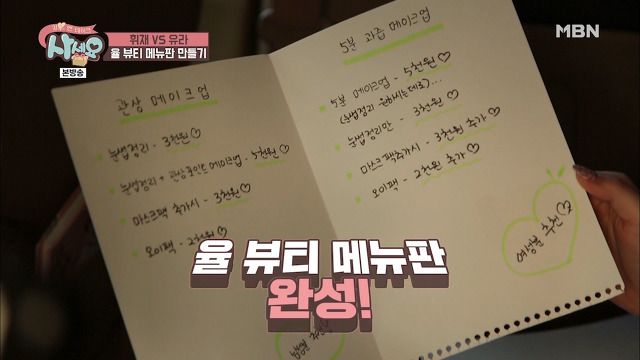 사세요
본방송
휘재 VS 유라
율 뷰티 메뉴판 만들기
MBN
관상 메이크업
눈썹정리 - 3천원♡
눈썹정리 + 관상포인트 메이크업 - 5천원♡
마스크팩 추가시 - 3천원♡
오이팩 - 2천원♡
5분 과즙 메이크업
5분 메이크업 - 5천원♡
(눈썹정리 원하시는대로)...
눈썹정리만 - 3천원♡
마스크팩추가시 - 3천원 추가♡
오이팩 - 2천원 추가♡
여성분 추천♡
율 뷰티 메뉴판
완성!